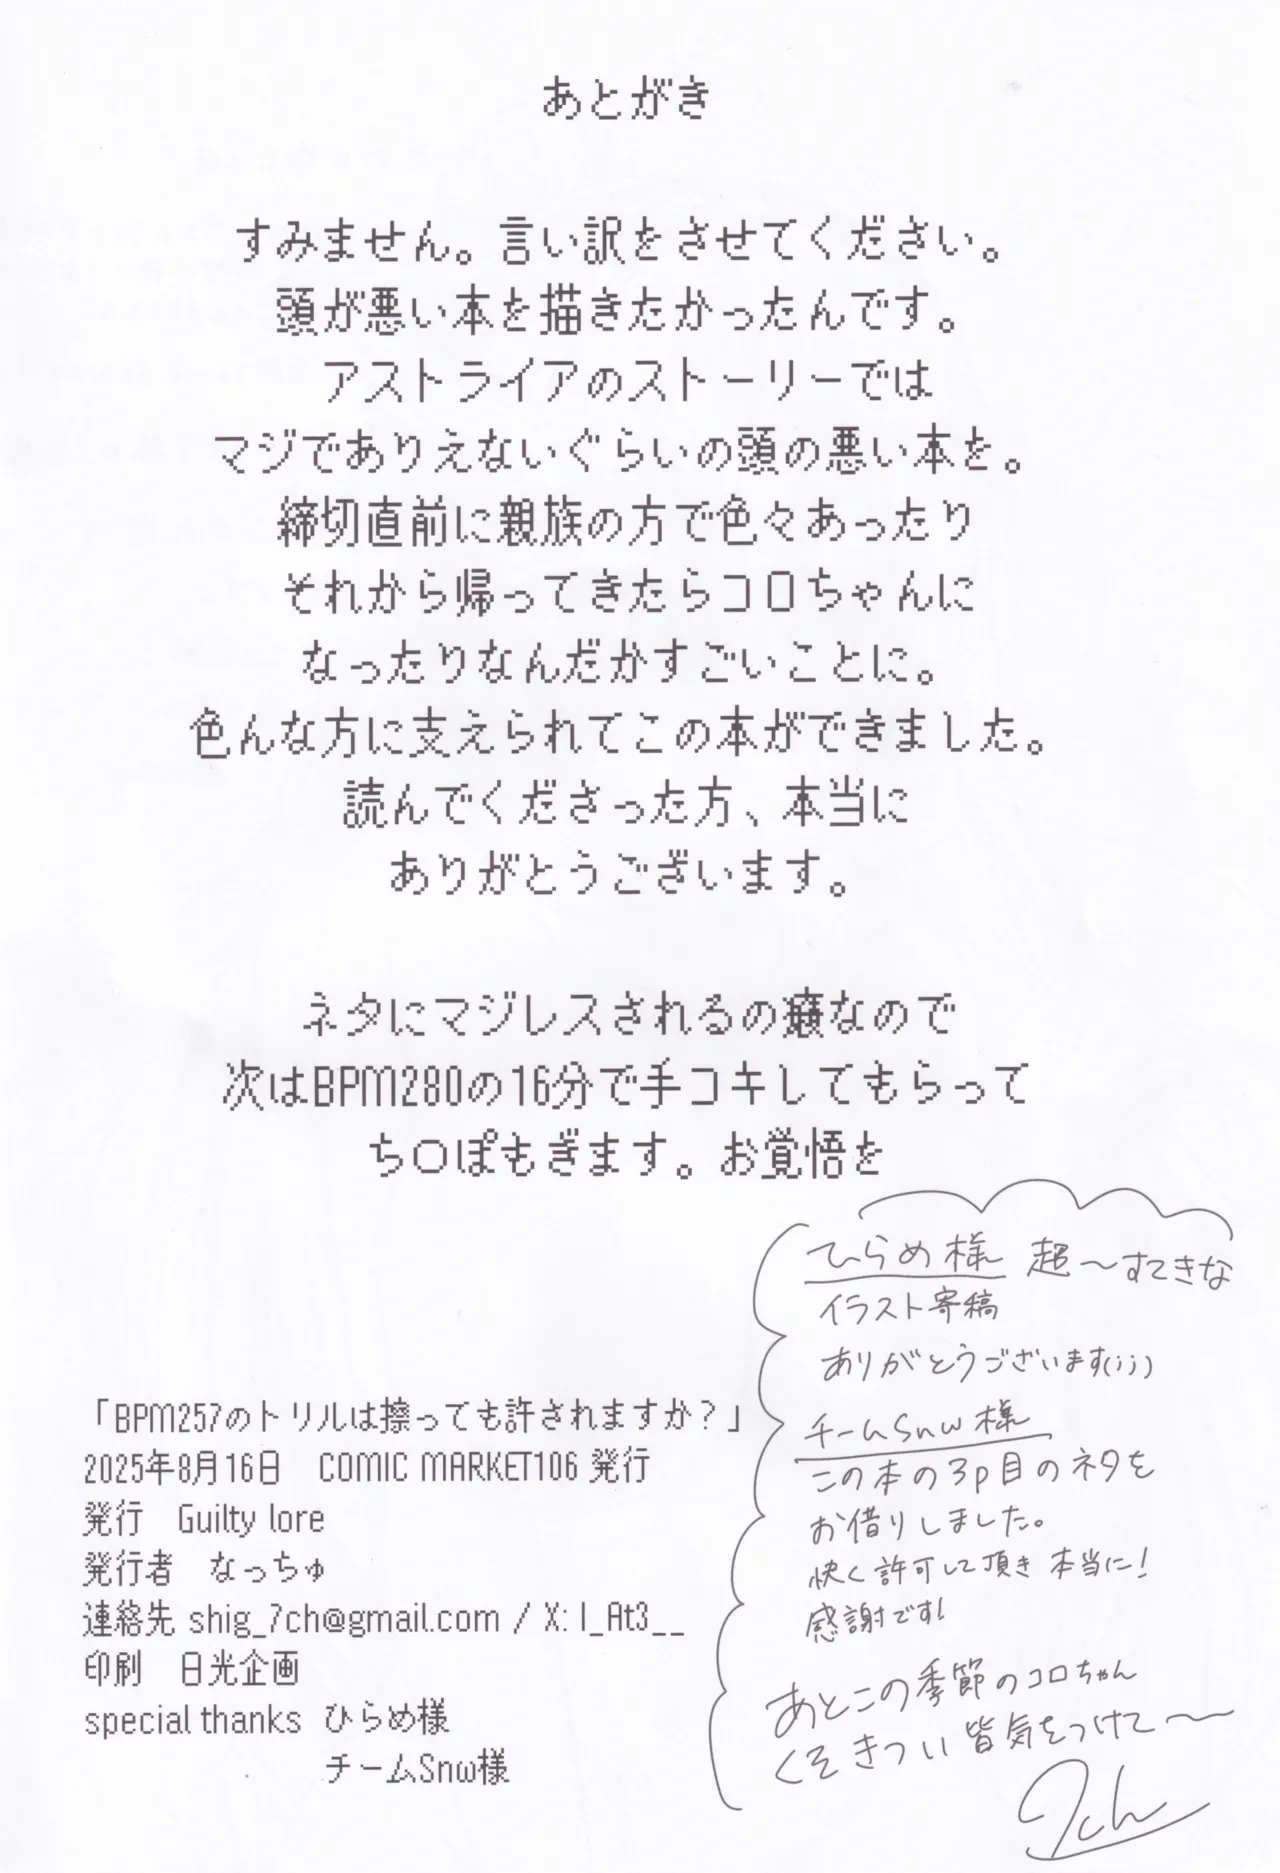 あとがき
すみません。言い訳をさせてください。
頭が悪い本を描きたかったんです。
アストライアのストーリーでは
マジでありえないぐらいの頭の悪い本を。
締切直前に親族の方で色々あったり
それから帰ってきたらコロちゃんに
なったりなんだかすごいことに。
色んな方に支えられてこの本ができました。
読んでくださった方、本当に
ありがとうございます。
ネタにマジレスされるの癪なので
次はBPM280の16分で手コキしてもらって
ち〇ぽもぎます。お覚悟を
ひらめ様 超〜すてきな
イラスト寄稿
ありがとうございます(;;)
チームSnw様
この本の3p目のネタを
お借りしました。
快く許可して頂き 本当に!
感謝です!
あとこの季節のコロちゃん
くそきつい皆気をつけて〜
7ch
「BPM257のトリルは擦っても許されますか？」
2025年8月16日　COMIC MARKET106 発行
発行　Guilty lore
発行者　なっちゅ
連絡先 shig_7ch@gmail.com / X: I_At3__
印刷　日光企画
special thanks　ひらめ様
チームSnw様